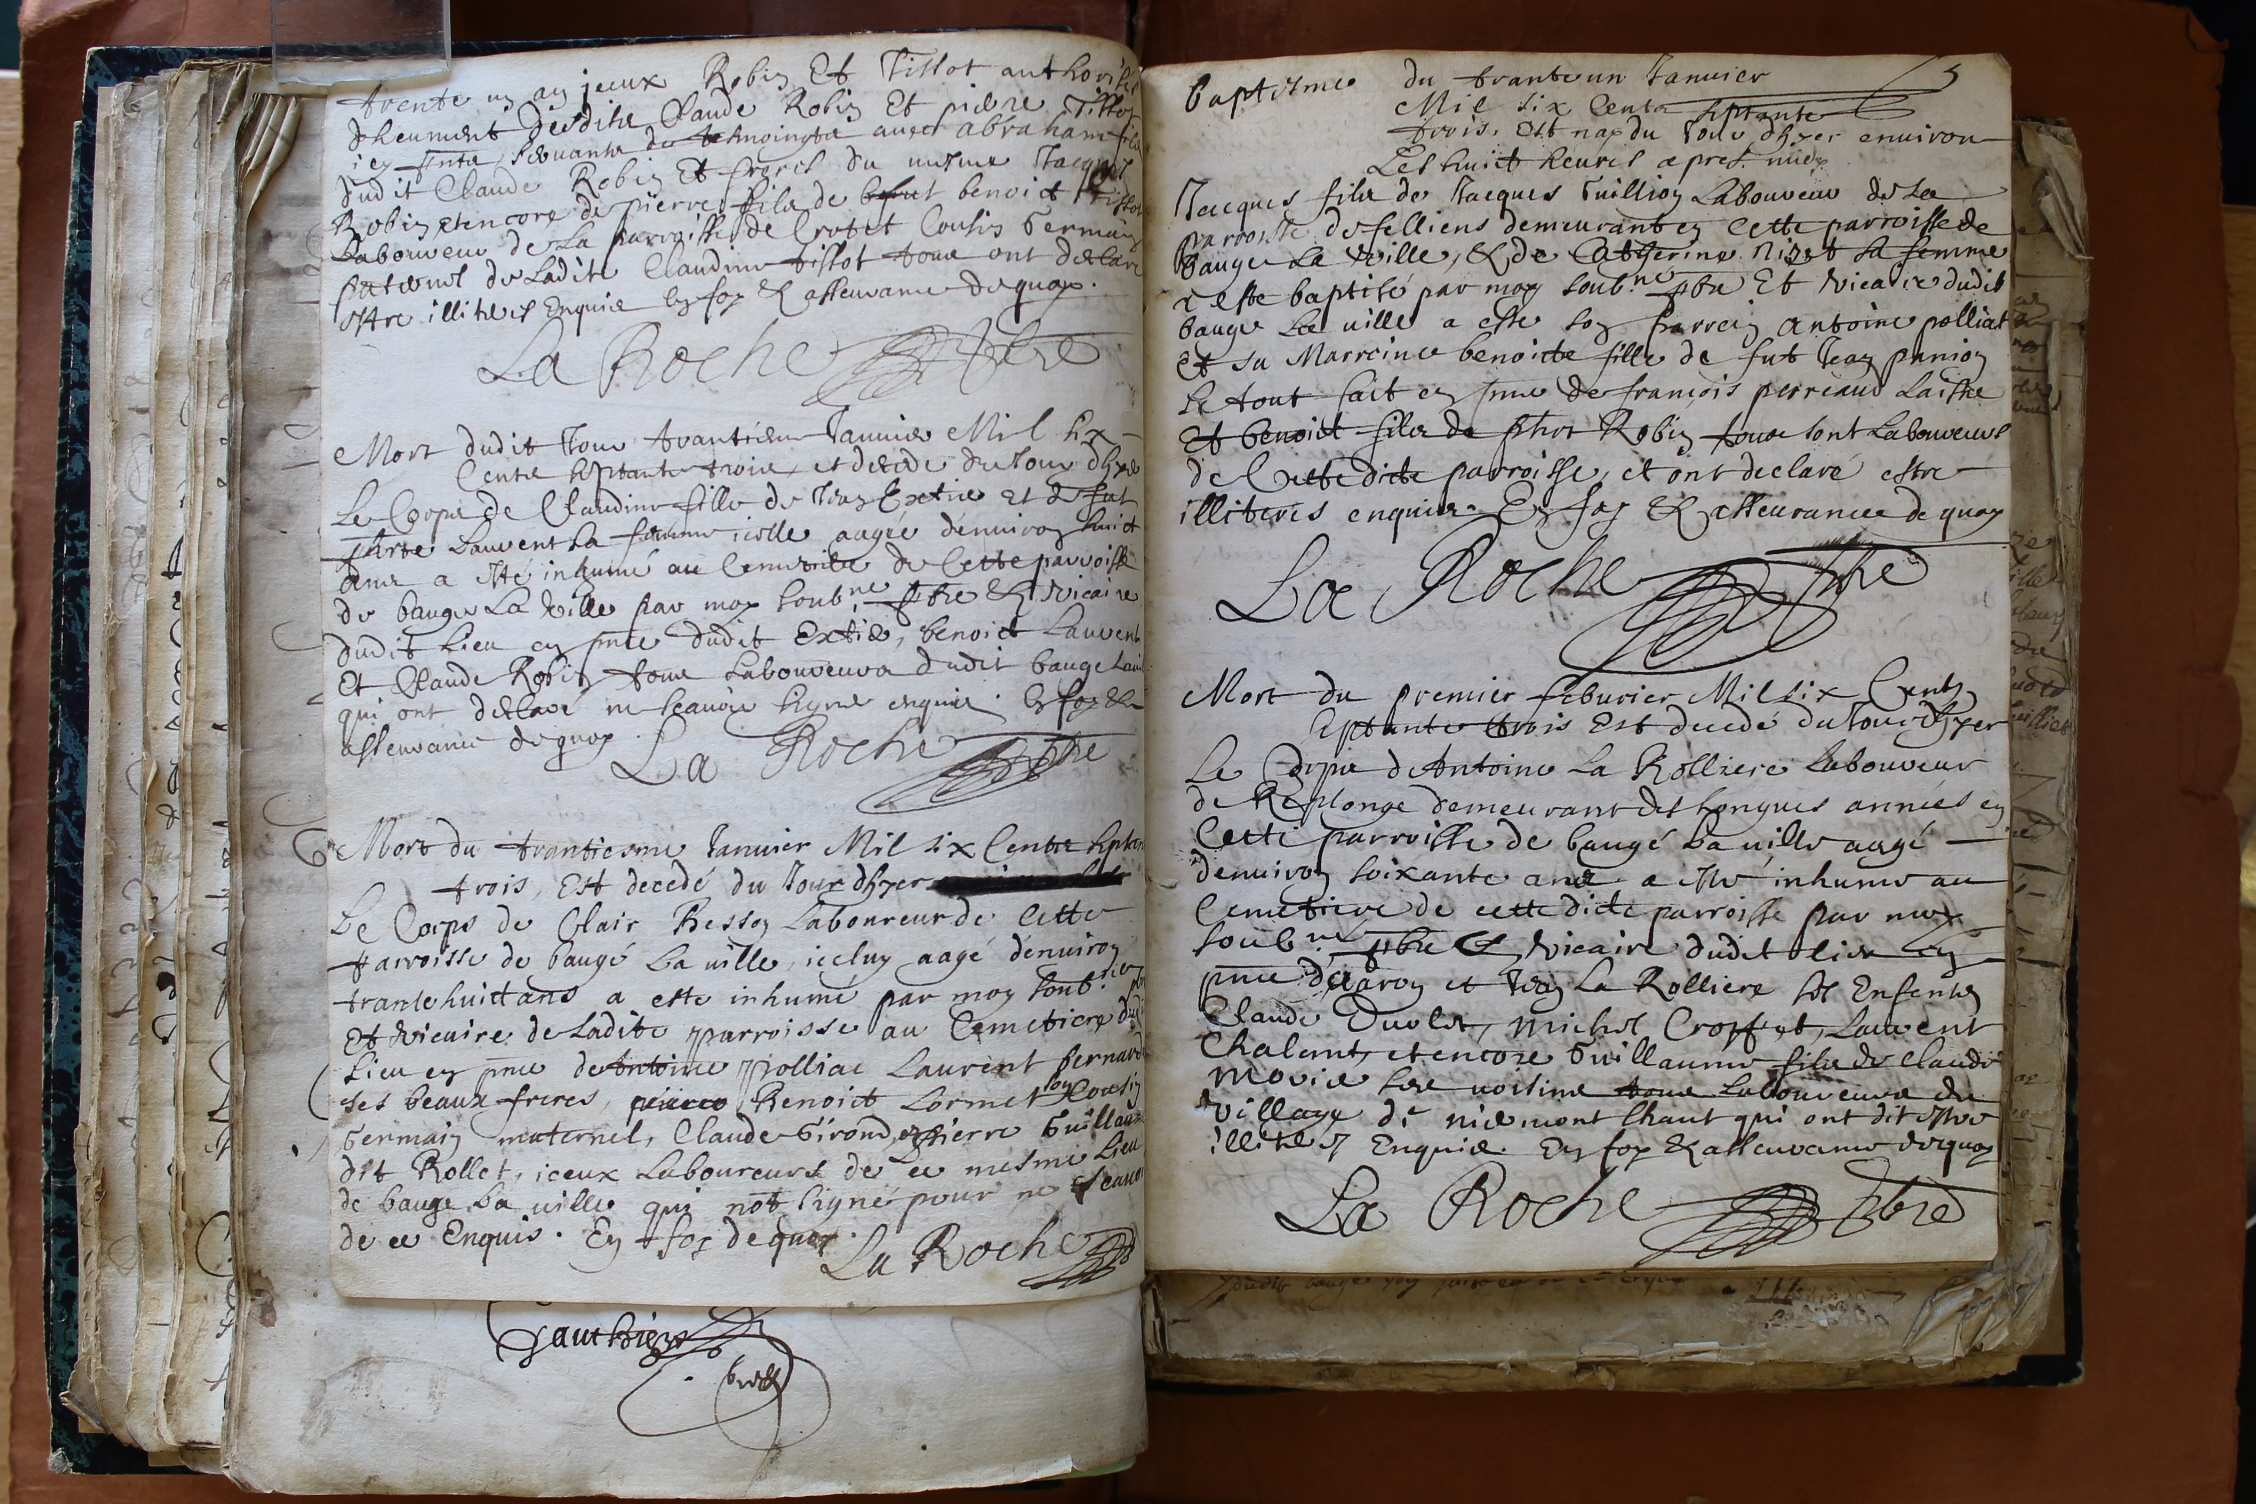 trente un an jceux Robin Et Tissot authorisés
dheument desdits Claude Robin Et pierre Tissot
icy pnts, servants de tesmoingts avec abraham fils
dudit Claude Robin Et frerel du mesme Jacques
Robin etencore de pierre fils de befut benoict Tissot
Laboureur de La parroisse de Crotet Cousin Germain
paternel de Ladite Claudine tissot tous ont declaré
estre illiteres Enquis En foy & asseurance dequoy.
La Roche pbre
Mort dudit Jour trantiesme Janvier Mil six
Cents septante trois, et decedé du Jour dhyer
Le Corps de Claudine fille de Jean Extier et de fut
Laurent sa femme icelle aagée d'enuiron huict
ans a esté inhumé au Cemetiere de Cette parroisse
de bauge La Ville par moy soub.né pbre & Vicaire
dudit Lieu en pnce dudit Extier, benoict Laurent
Et Claude Robin tous Laboureurs dudit bauge
qui ont declaré ne scauoir signer enquis. En foy &
asseurance dequoy
La Roche pbre
Mort du trantiesme Janvier Mil six Cents septante
trois, Est decedé du Jour dhyer
Le Corps de Clair Besson Laboureur de Cette
parroisse de baugé La uille, iceluy aagé d'enuiron
trante huict ans a esté inhumé par moy soub.né pbre
Et Vicaire de Ladite parroisse au Cemetiere dudit
Lieu en pnce de Antoine polliac Laurent bernard
ses beaux freres, Benoict Lormet son Cousin
Germain maternel, Claude Girond, et Pierre Guillaux
dit Rollet, iceux Laboureurs de ce mesme Lieu
de bauge La uille qui not signé pour ne scauoir
de ce Enquis. En foy dequoy.
La Roche
Gauthier
baptesme du trante un Janvier
Mil six Cents septante
trois. est nay du Jour dhyer enuiron
Les huict heures apres midy
Jacques fils de Jacques Guillion Laboureur de La
parroisse de felliens demeurant en Cette parroisse de
Bauge La Ville, & de Catherine Nizet sa femme
a este baptisé par moy soub.né pbre Et Vicaire dudit
bauge La uille a este son parrein antoine polliat
et sa Marreine benoicte fille de fut Jean panion
Le tout fait en pnce de françois perreaud Laisné
Et benoict fils de phor Robin tous sont Laboureurs
de Cette dicte parroisse, et ont declaré estre
illiterés enquis. En foy & asseurance de quoy
La Roche pbre
Mort du premier feburier Mil six Cents
septante trois Est decedé du Jour dhyer
Le Corps d'Antoine La Rolliere Laboureur
de Replonge demeurant des Longues années en
Cette parroisse de baugé La uille aagé
denuiron soixante ans a esté inhumé au
Cemetiere de cette dicte parroisse par moy
soub.né pbre & Vicaire dudit lieu en
pnce d'Claude et Jean La Rolliere ses Enfents
Claude Duolet, Michel Croppet, Laurent
Chalant, et encore Guillaume fils de Claude
Morie ses uoisins tous Laboureurs du
Village de niermont Chaut qui ont dit estre
illiteres Enquis. En foy & asseurance dequoy
La Roche pbre